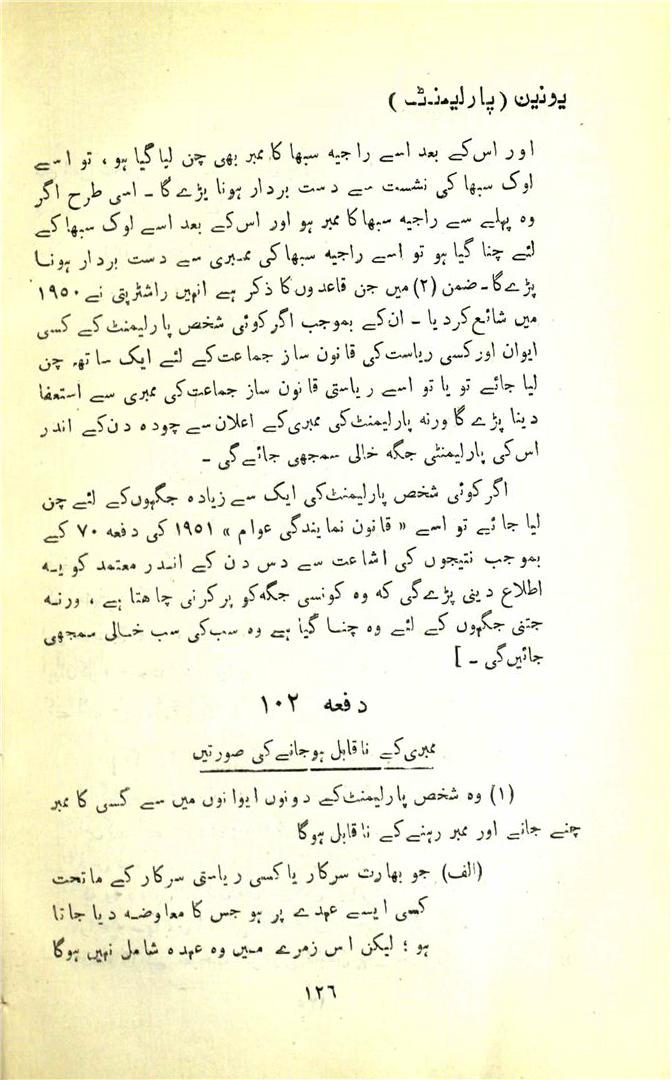 یونین (پارلیمنٹ)
اور اس کے بعد اسے راجیہ سبھا کا ممبر بھی چن لیا گیا ہو ، تو اسے
لوک سبھا کی نشست سے دست بردار ہونا پڑے گا ۔ اسی طرح اگر
وہ پہلے سے راجیہ سبھا کا ممبر ہو اور اس کے بعد اسے لوک سبھا کے
لئے چنا گیا ہو تو اسے راجیہ سبھا کی ممبری سے دست بردار ہونا
پڑے گا ۔ ضمن (۲) میں جن قاعدوں کا ذکر ہے انہیں راشٹرپتی نے ۱۹۵۰
میں شائع کر دیا ۔ ان کے بموجب اگر کوئی شخص پارلیمنٹ کے کسی
ایوان اور کسی ریاست کی قانون ساز جماعت کے لئے ایک ساتھ چن
لیا جائے تو یا تو اسے ریاستی قانون ساز جماعت کی ممبری سے استعفا
دینا پڑے گا ورنہ پارلیمنٹ کی ممبری کے اعلان سے چودہ دن کے اندر
اس کی پارلیمنٹی جگہ خالی سمجھی جائے گی ۔
اگر کوئی شخص پارلیمنٹ کی ایک سے زیادہ جگہوں کے لئے چن
لیا جائے تو اسے « قانون نمایندگی عوام » ۱۹۵۱ کی دفعہ ۷۰ کے
بموجب نتیجوں کی اشاعت سے دس دن کے اندر معتمد کو یہ
اطلاع دینی پڑے گی کہ وہ کونسی جگہ کو پر کرنی چاھتا ہے ، ورنہ
جتنی جگہوں کے لئے وہ چنا گیا ہے وہ سب کی سب خالی سمجھی
جائیں گی ۔ ]
دفعہ ۱۰۲
ممبری کے ناقابل ہو جانے کی صورتیں
(۱) وہ شخص پارلیمنٹ کے دونوں ایوانوں میں سے کسی کا ممبر
چنے جانے اور ممبر رہنے کے ناقابل ہوگا
(الف) جو بھارت سرکار یا کسی ریاستی سرکار کے ماتحت
کسی ایسے عہدے پر ہو جس کا معاوضہ دیا جاتا
ہو ؛ لیکن اس زمرے میں وہ عہدہ شامل نہیں ہوگا
۱۲۶